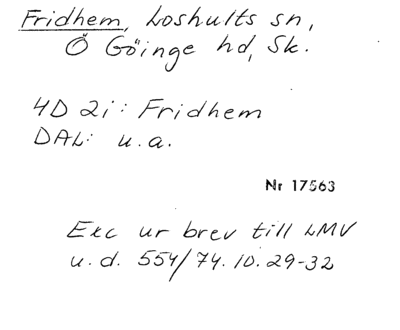 Fridhem, Loshults sn,
Ö Göinge hd, Sk.
4D 2i: Fridhem
DAL: u.a.
Nr 17563
Exc ur brev till LMV
u.d. 554/74.10.29-32